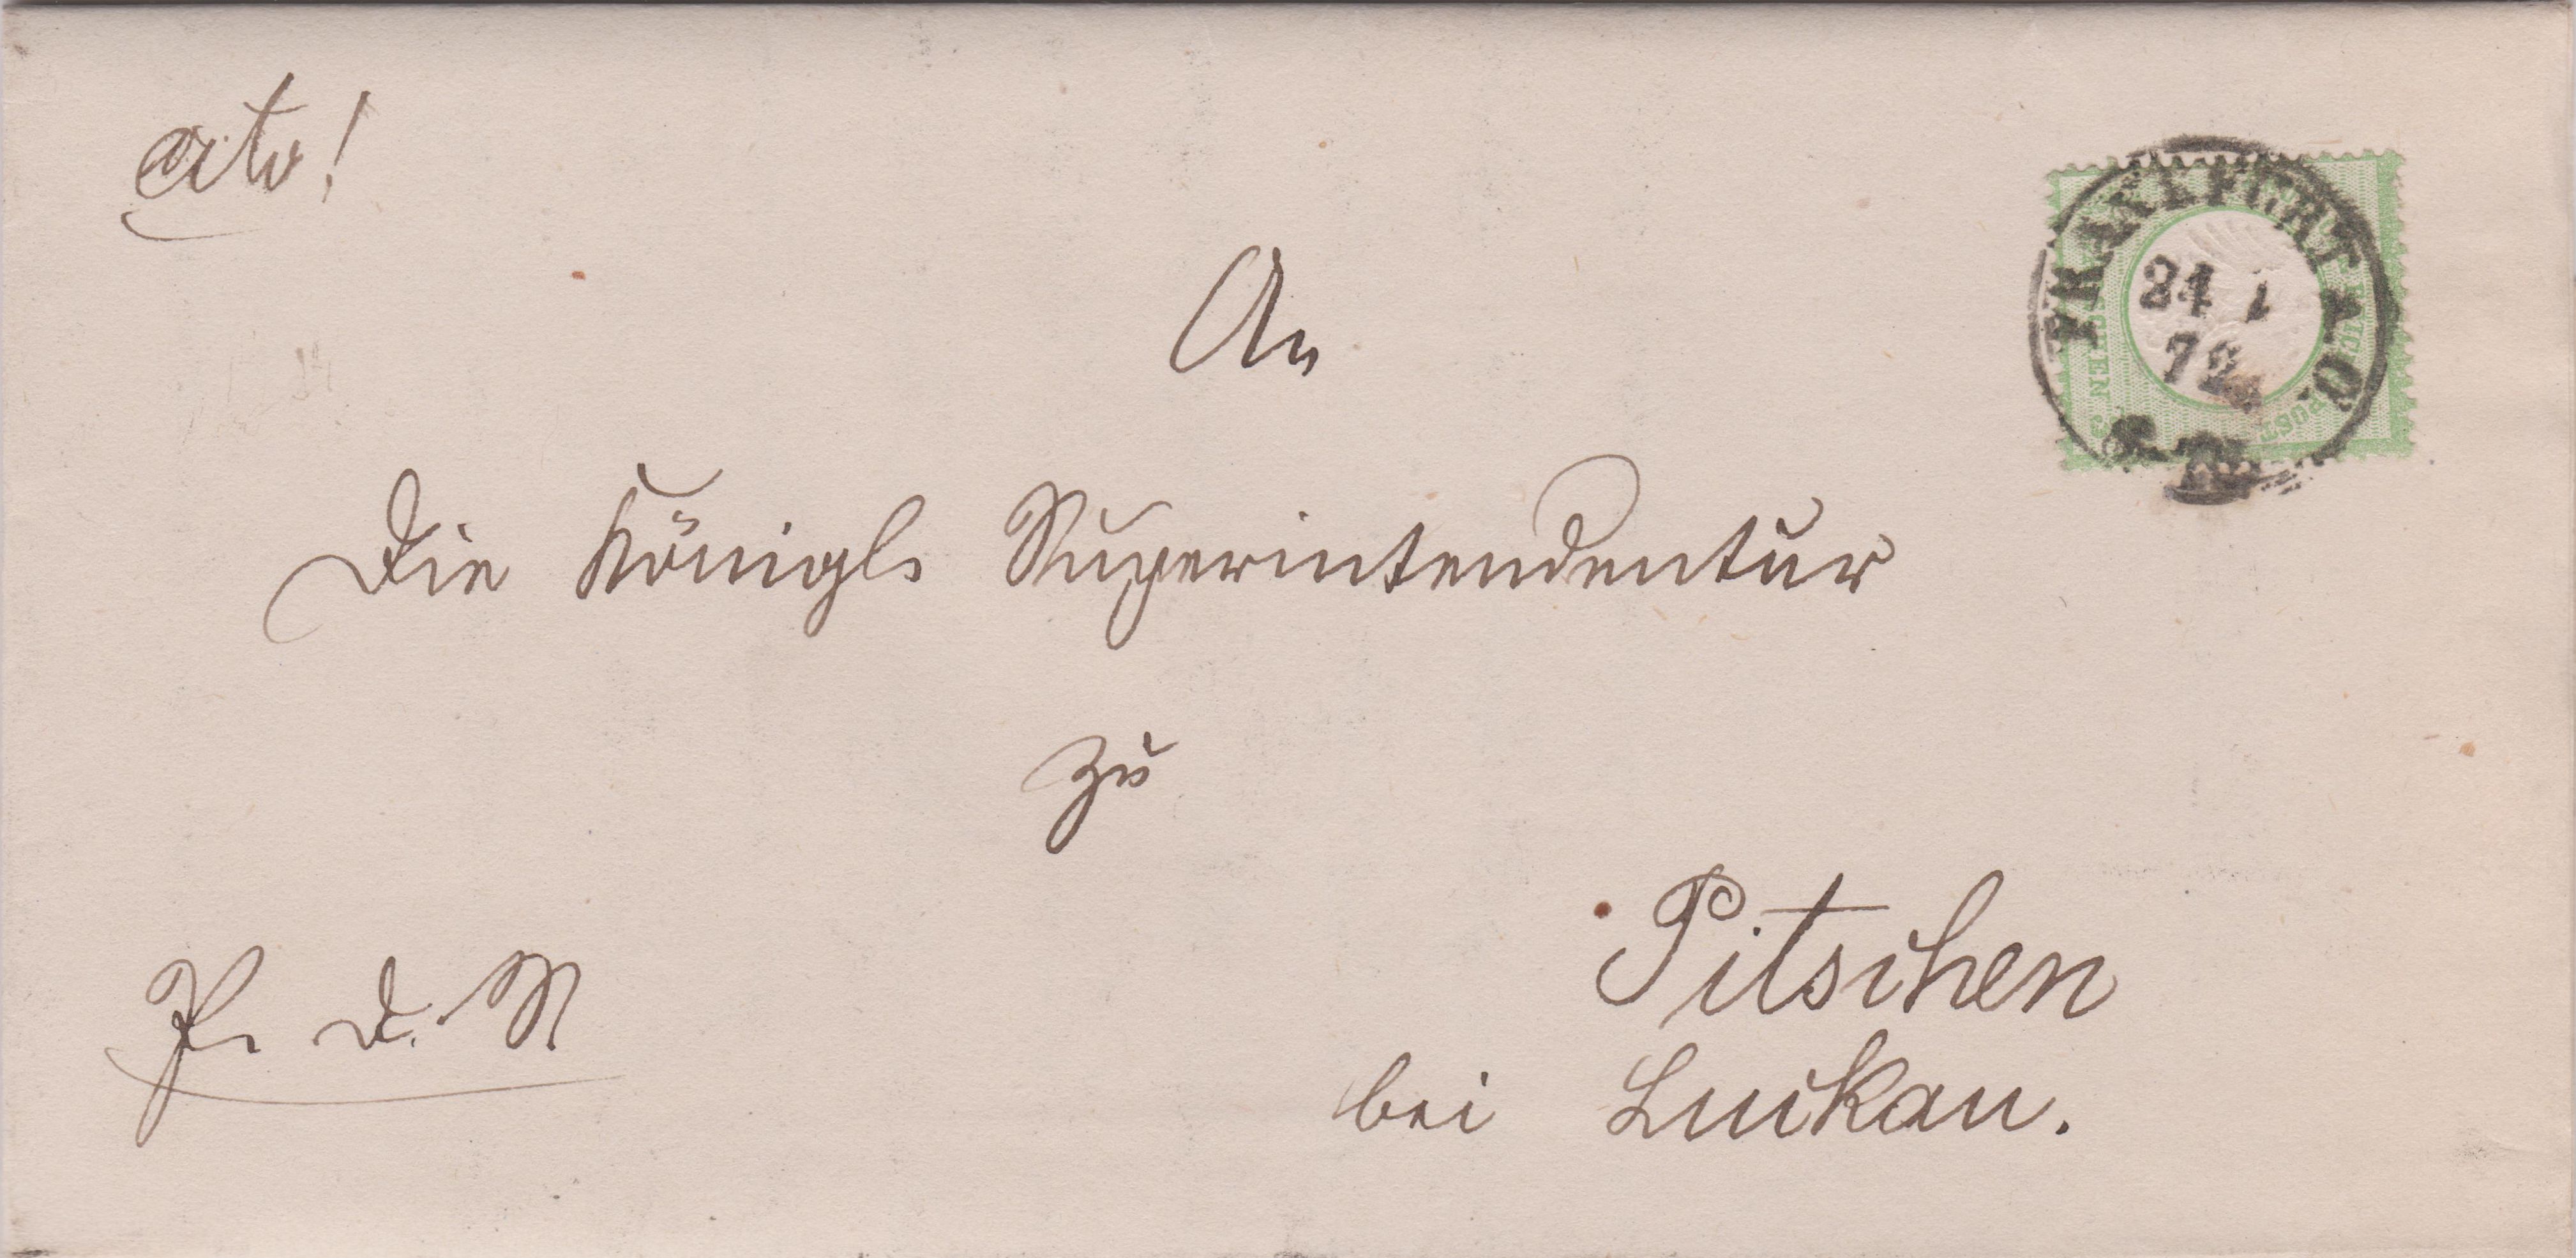 cito!
FRANKFURT A. O.
24 1
72
An
Die Königl. Superintendentur
zu
Pitschen
bei Luckau.
P. d. R.